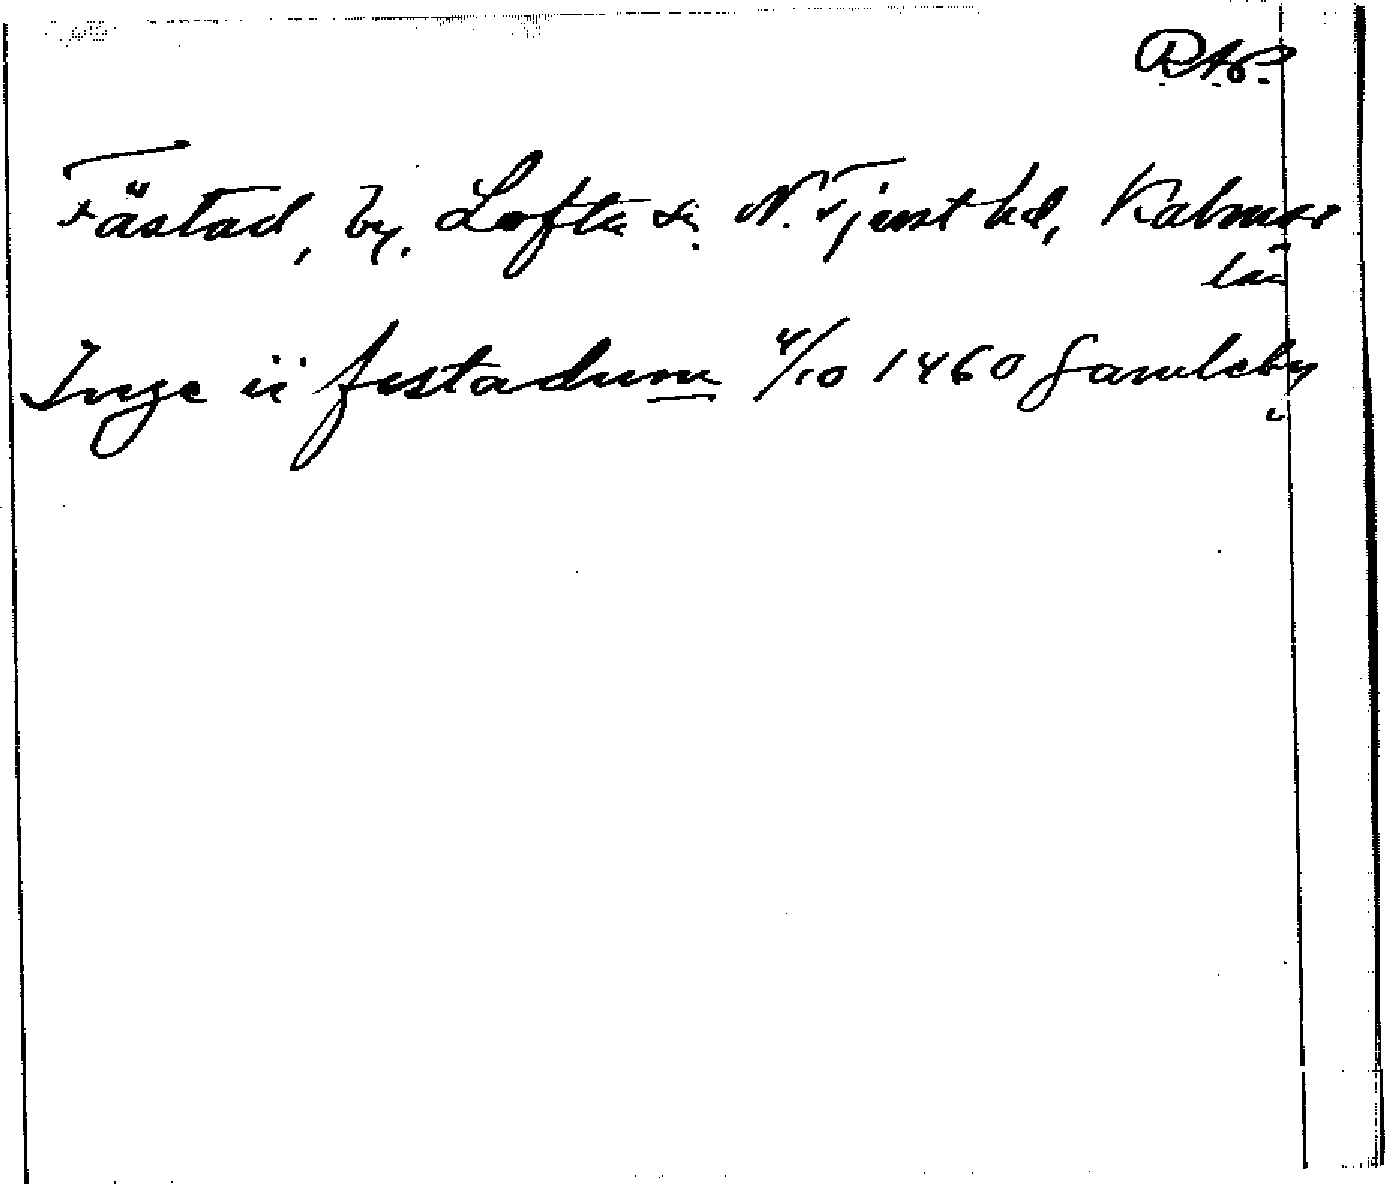 RAP.
Fästad, by, Lofta sn. N. Tjust hd, Kalmar
län
Inge ii festadum 4/10 1460 Gamleby